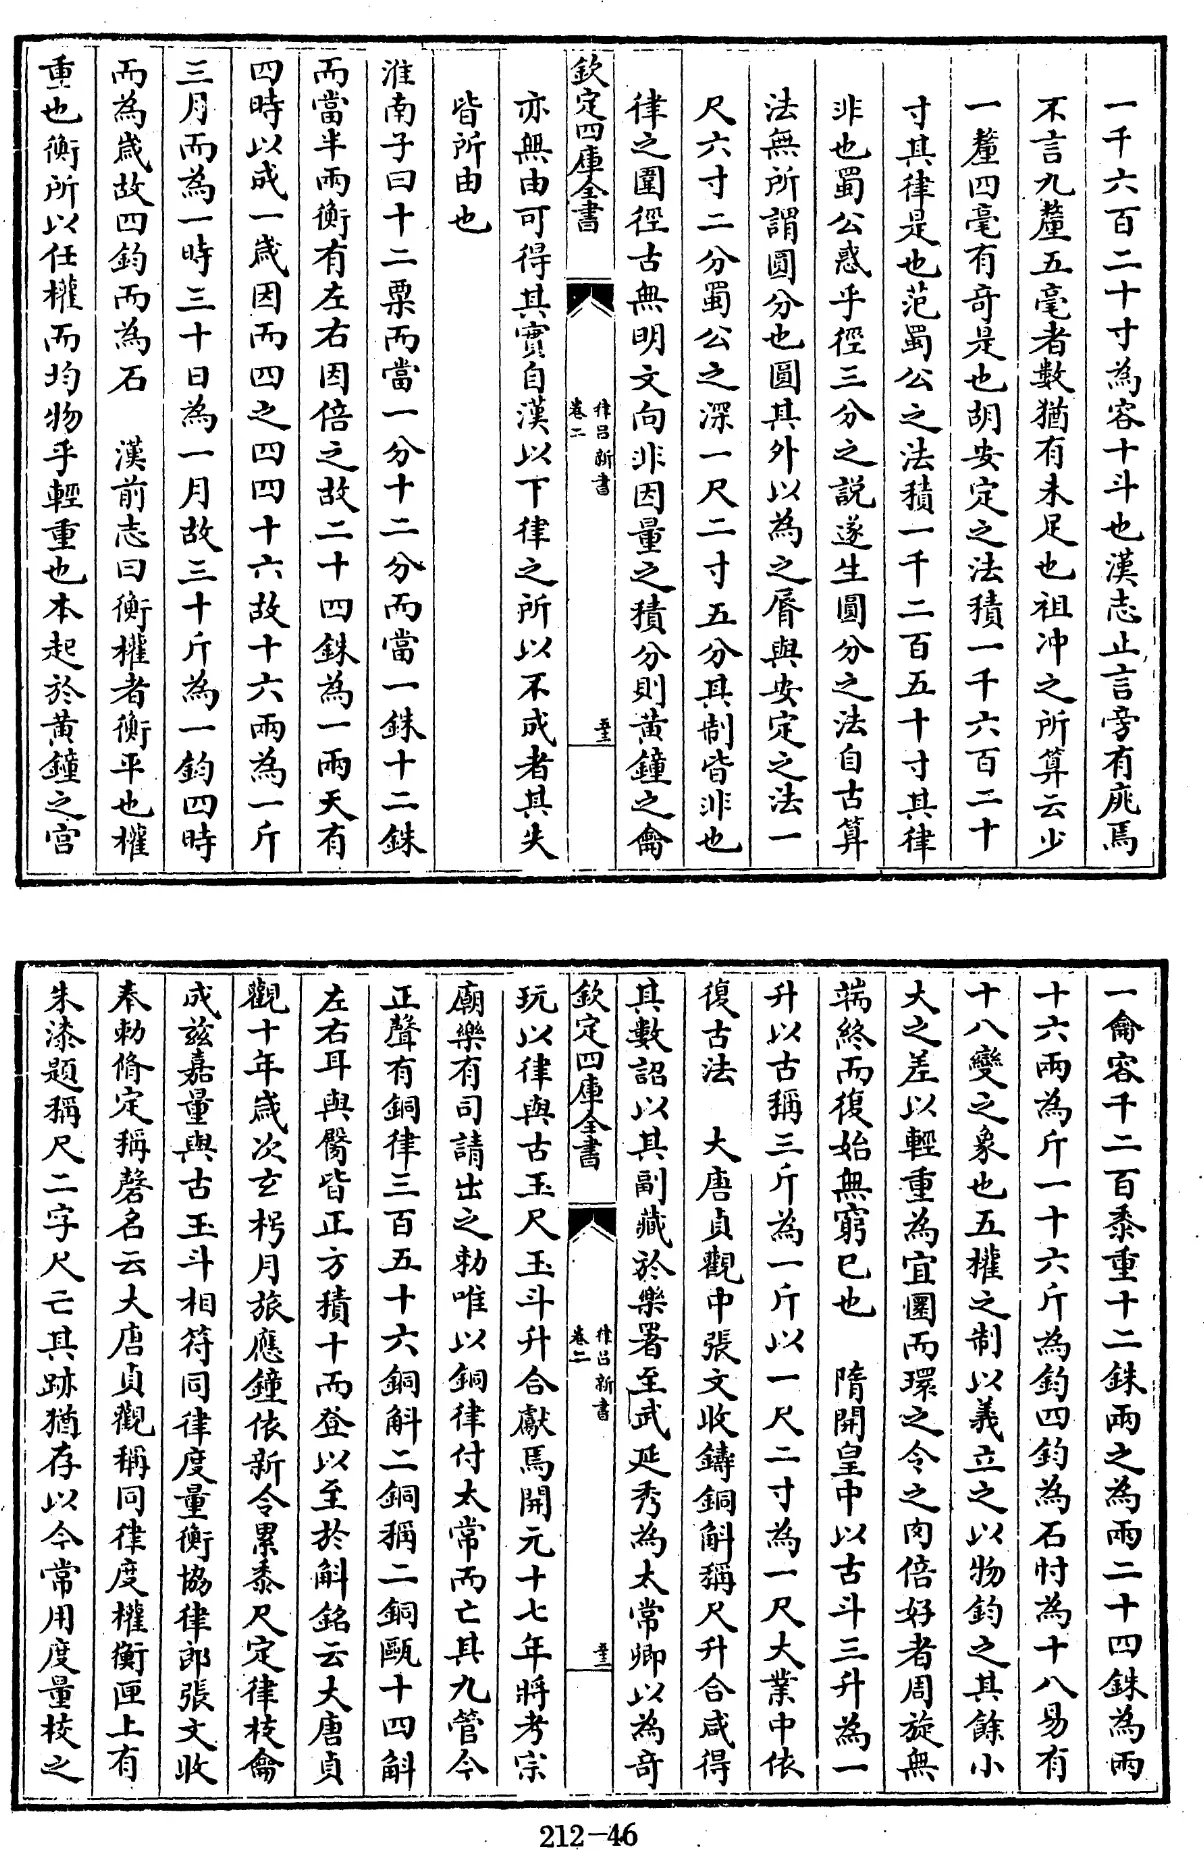 一千六百二十寸為容十斗也漢志止言旁有庣焉
不言九釐五毫者數猶有未足也祖沖之所算云少
一釐四毫有奇是也胡安定之法積一千六百二十
寸其律是也范蜀公之法積一千二百五十寸其律
非也蜀公惑乎徑三分之說遂生圓分之法自古算
法無所謂圓分也圓其外以為之脣與安定之法一
尺六寸二分蜀公之深一尺二寸五分其制皆非也
律之圍徑古無明文向非因量之積分則黃鐘之龠
欽定四庫全書
律呂新書
卷二
至
亦無由可得其實自漢以下律之所以不成者其失
皆所由也
淮南子曰十二粟而當一分十二分而當一銖十二銖
而當半兩衡有左右因倍之故二十四銖為一兩天有
四時以成一歲因而四之四四十六故十六兩為一斤
三月而為一時三十日為一月故三十斤為一鈞四時
而為歲故四鈞而為石　漢前志曰衡權者衡平也權
重也衡所以任權而均物平輕重也本起於黃鐘之宮
一龠容千二百黍重十二銖兩之為兩二十四銖為兩
十六兩為斤一十六斤為鈞四鈞為石忖為十八易有
十八變之象也五權之制以義立之以物鈞之其餘小
大之差以輕重為宜圜而環之令之肉倍好者周旋無
端終而復始無窮已也　隋開皇中以古斗三升為一
升以古稱三斤為一斤以一尺二寸為一尺大業中依
復古法　大唐貞觀中張文收鑄銅斛稱尺升合咸得
其數詔以其副藏於樂署至武延秀為太常卿以為奇
欽定四庫全書
律呂新書
卷二
玩以律與古玉尺玉斗升合獻焉開元十七年將考宗
廟樂有司請出之勅唯以銅律付太常而亡其九管今
正聲有銅律三百五十六銅斛二銅稱二銅甌十四斛
左右耳與臋皆正方積十而登以至於斛銘云大唐貞
觀十年歲次玄枵月旅應鐘依新令累黍尺定律校龠
成茲嘉量與古玉斗相符同律度量衡協律郎張文收
奉勅脩定稱磬名云大唐貞觀稱同律度權衡匣上有
朱漆題稱尺二字尺亡其跡猶存以今常用度量校之
212-46